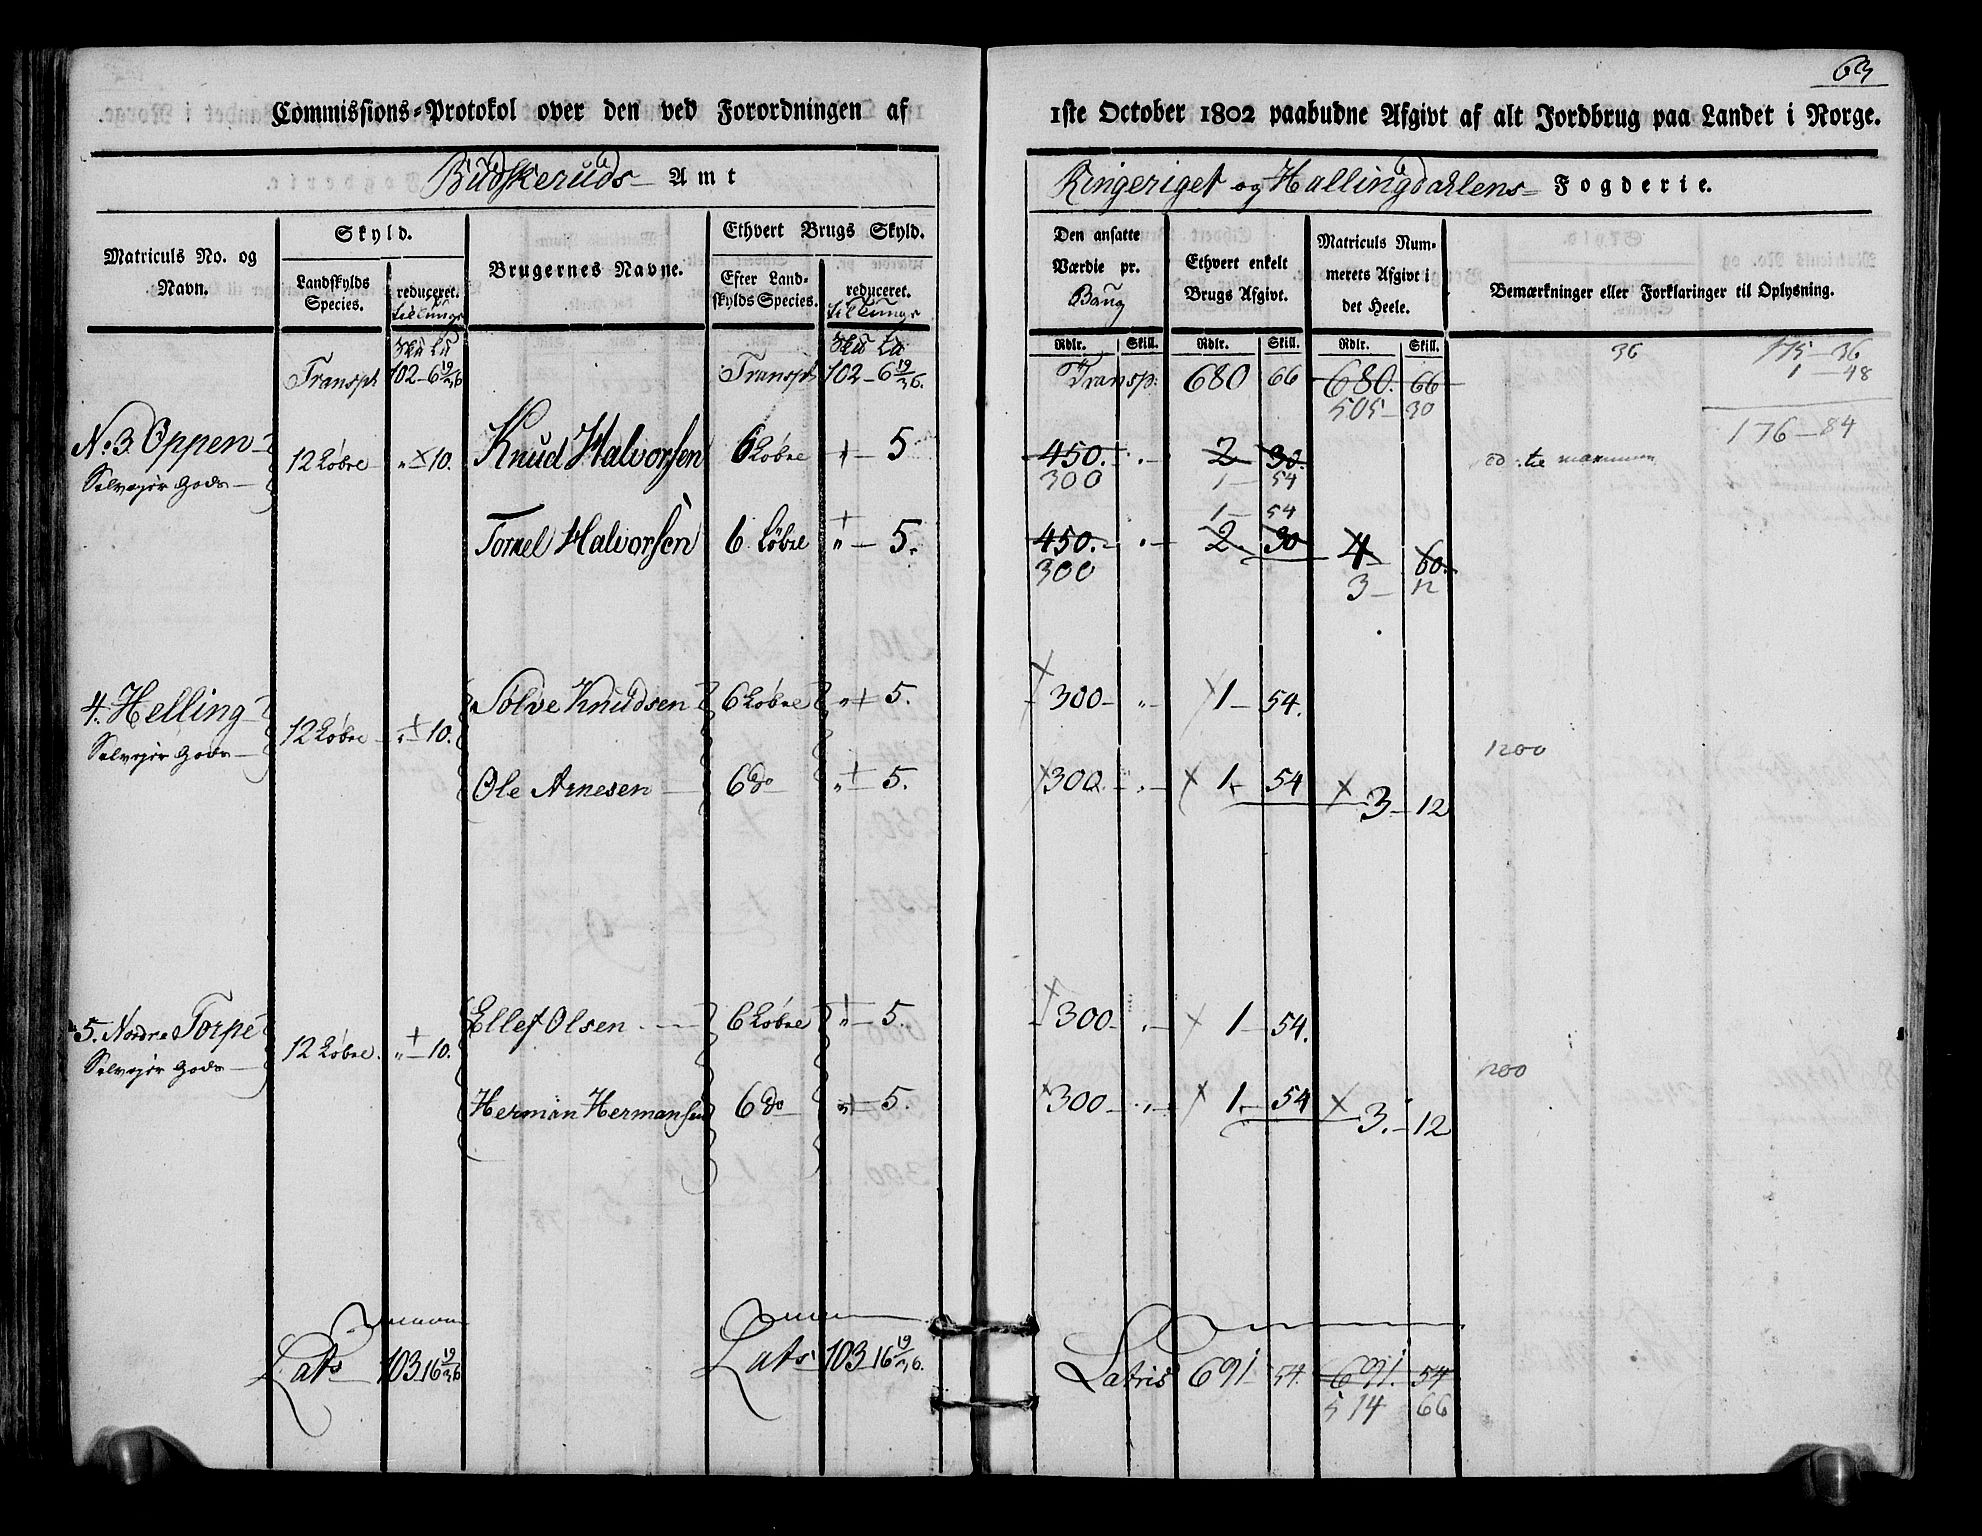 63
Commissions-Protokol over den ved Forordningen af 1ste October 1802 paabudne Afgivt af alt Jordbrug paa Landet i Norge.
Budskeruds Amt Ringeriget og Hallingdahlens Fogderie.
Matriculs No. og Navn. Skyld. Landskylds Species. reduceret. Brugernes Navne. Ethvert Brugs Skyld. Efter Landskylds Species. reduceret. Den ansatte Værdie pr. Baug Ethvert enkelt Brugs Afgivt. Matriculs Nummerets Afgivt i det Heele. Bemærkninger eller Forklaringer til Oplysning.
Rdlr. Skill. Rdlr. Skill. Rdlr. Skill.
36 175 - 36
1 - 48
Transpt 102 - 6 19/36 Transpt 102 - 6 19/36. Transp: 680 66 680. 66
505 - 30
176 - 84
No 3 Oppen 12 Løbe „ - 10. Knud Halvorsen 6 Løbe - 5 450. „ - 2 30.
Selvejer Gods 300 1 - 54
1 - 54
Tornel Halvorsen 6 Løbe „ - 5. 450. „ - 2. 30 4 60.
300 3 - 12
4. Helling 12 Løbe „ - 10. Solve Knudsen 6 Løbe „ - 5. 300 - „ - 1 - 54.
Selvejer Gods 1200
Ole Arnesen 6 do „ - 5. 300. „ - 1 - 54 3 - 12
5. Nordre Torpe 12 Løbe. „ - 10. Ellef Olsen 6 Løbe „ - 5. 300 - „ - 1 - 54.
Selvejer Gods 1200
Herman Hermansen 6 do „ - 5. 300 - „ - 1 - 54 3. - 12
Lats 103 - 16 19/36 Lats 103 - 16 19/36. Latris 691 - 54. 691. 54
514 66